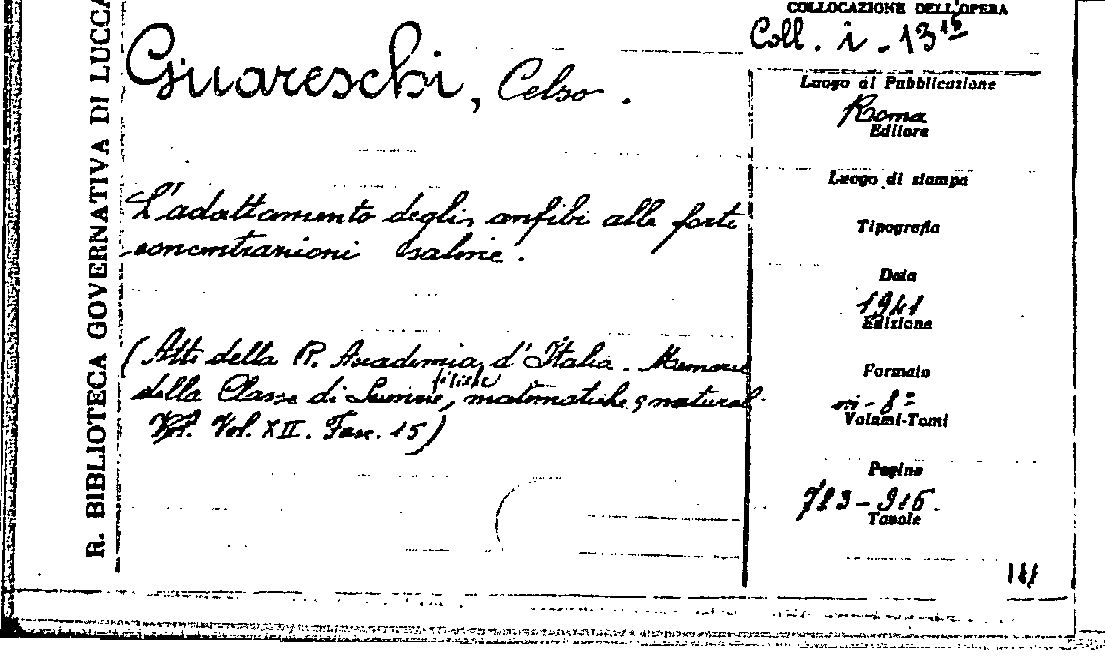 R. BIBLIOTECA GOVERNATIVA DI LUCCA
COLLOCAZIONE DELL'OPERA
Coll. i - 13¹⁵
Guareschi, Celso.
L'adattamento degli anfibi alle forti
concentrazioni saline.
(Atti della R. Accademia d'Italia. Memorie
della Classe di Scienze fisiche, matematiche e naturali
Vol. XII. Fasc. 15)
Luogo di Pubblicazione
Roma
Editore
Luogo di stampa
Tipografia
Data
1941
Edizione
Formato
in - 8º
Volumi-Tomi
Pagine
Tavole